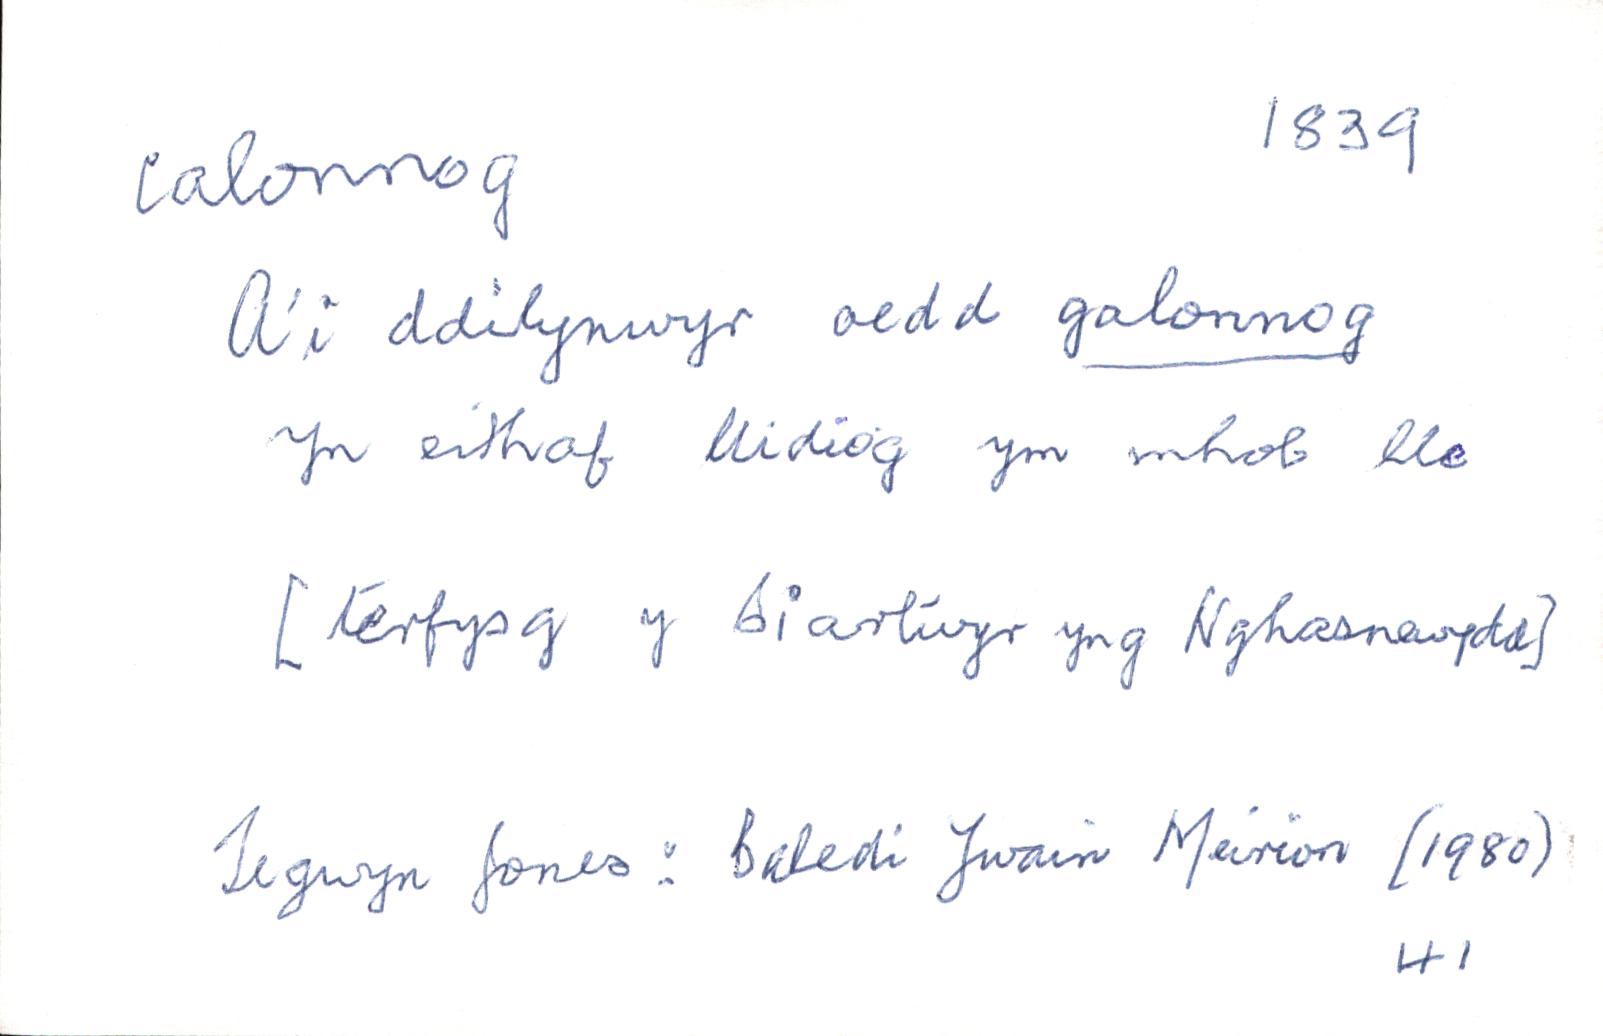 1839
calonnog
A'i ddilynwyr oedd galonnog
yn eithaf llidiog ym mhob lle
[Terfysg y Siartwyr yng Nghasnewydd]
Tegwyn Jones: Baledi Ywain Meirion (1980)
41